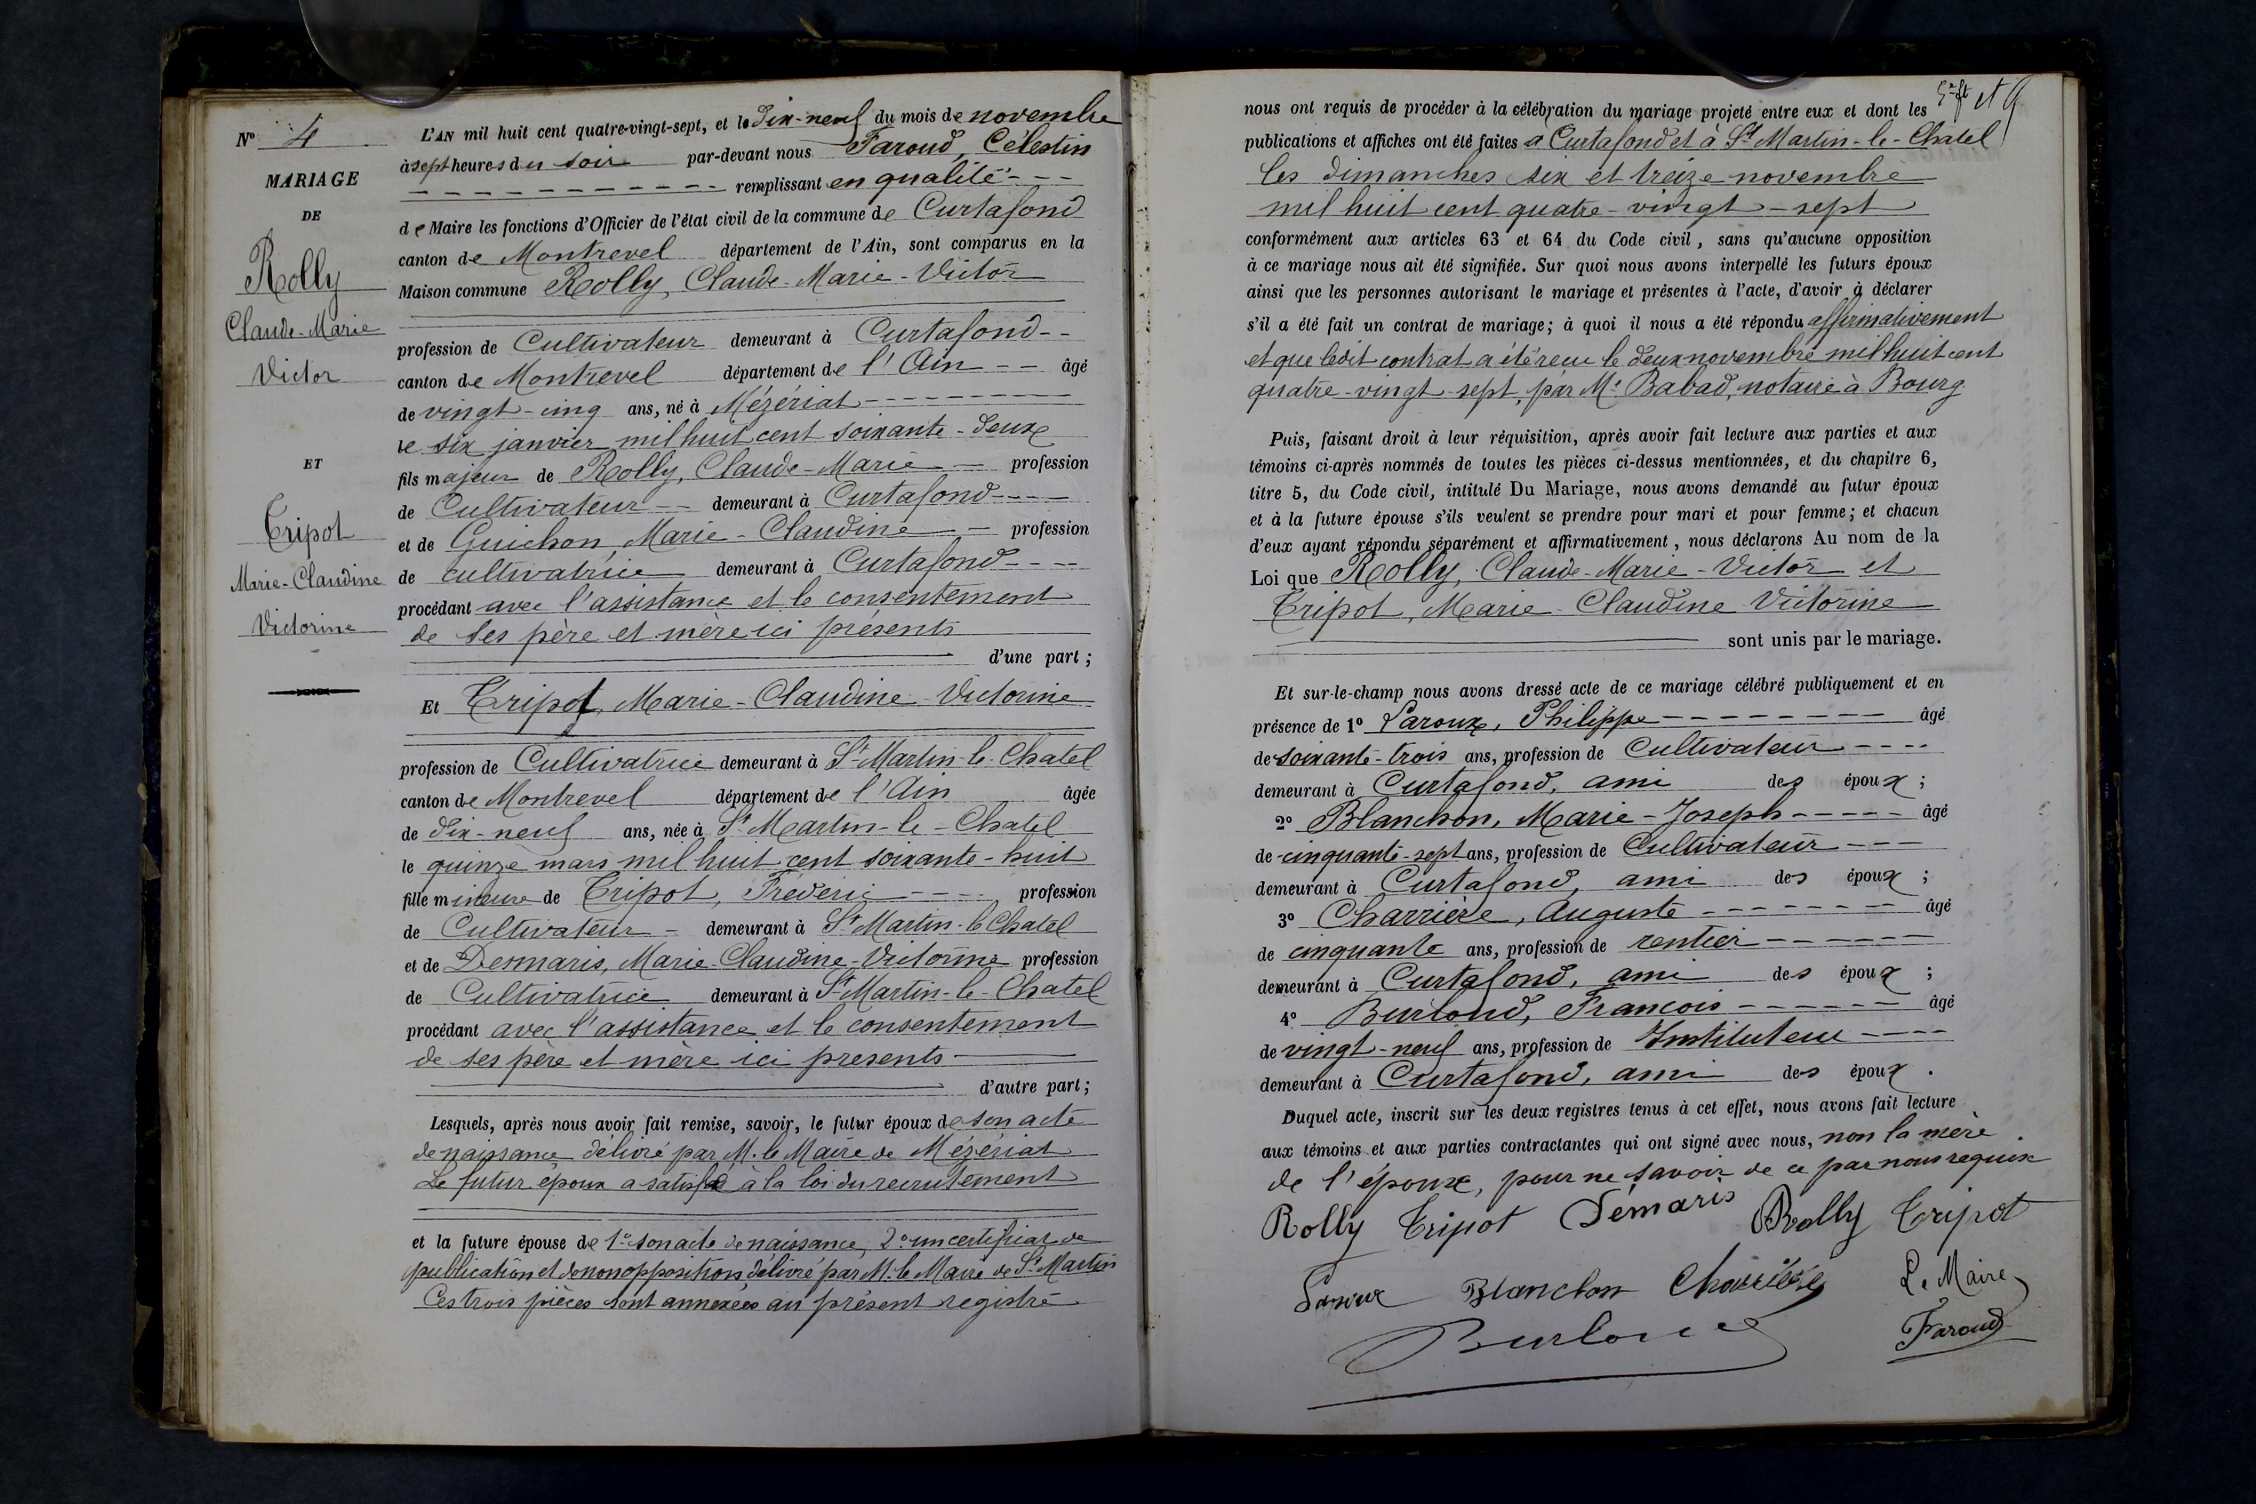 N° 4
MARIAGE
DE
Rolly
Claude-Marie
Victor
ET
Tripot
Marie-Claudine
Victorine
L'AN mil huit cent quatre-vingt-sept, et le dix-neuf du mois de novembre
à sept heures du soir par-devant nous Faroud, Célestin
remplissant en qualité
de Maire les fonctions d'Officier de l'état civil de la commune de Curtafond
canton de Montrevel département de l'Ain, sont comparus en la
Maison commune Rolly, Claude-Marie-Victor
profession de Cultivateur demeurant à Curtafond
canton de Montrevel département de l'Ain âgé
de vingt-cinq ans, né à Mézériat
le six janvier mil huit cent soixante-deux
fils majeur de Rolly, Claude-Marie profession
de Cultivateur demeurant à Curtafond
et de Guichon, Marie-Claudine profession
de cultivatrice demeurant à Curtafond
procédant avec l'assistance et le consentement
de ses père et mère ici présents
d'une part ;
Et Tripot, Marie-Claudine Victorine
profession de Cultivatrice demeurant à St Martin-le-Chatel
canton de Montrevel département de l'Ain âgée
de dix-neuf ans, née à St Martin-le-Chatel
le quinze mars mil huit cent soixante-huit
fille mineure de Tripot, Fréderic profession
de Cultivateur demeurant à St Martin-le Chatel
et de Desmaris, Marie Claudine-Victorine profession
de Cultivatrice demeurant à St Martin-le-Chatel
procédant avec l'assistance et le consentement
de ses père et mère ici presents
d'autre part ;
Lesquels, après nous avoir fait remise, savoir, le futur époux de son acte
de naissance délivré par M. le Maire de Mézériat
Le futur époux a satisfait à la loi du recrutement
et la future épouse de 1° son acte de naissance, 2° un certificat de
publication et de non opposition délivré par M. le Maire de St Martin
Ces trois pièces sont annexées au présent registre
nous ont requis de procéder à la célébration du mariage projeté entre eux et dont les
publications et affiches ont été faites à Curtafond et à St Martin-le-Chatel
les dimanches six et treize novembre
mil huit cent quatre-vingt-sept
conformément aux articles 63 et 64 du Code civil, sans qu'aucune opposition
à ce mariage nous ait été signifiée. Sur quoi nous avons interpellé les futurs époux
ainsi que les personnes autorisant le mariage et présentes à l'acte, d'avoir à déclarer
s'il a été fait un contrat de mariage ; à quoi il nous a été répondu affirmativement
et que ledit contrat a été reçu le deux novembre mil huit cent
quatre-vingt-sept, par Me Babad, notaire à Bourg
Puis, faisant droit à leur réquisition, après avoir fait lecture aux parties et aux
témoins ci-après nommés de toutes les pièces ci-dessus mentionnées, et du chapitre 6,
titre 5, du Code civil, intitulé Du Mariage, nous avons demandé au futur époux
et à la future épouse s'ils veulent se prendre pour mari et pour femme ; et chacun
d'eux ayant répondu séparément et affirmativement, nous déclarons Au nom de la
Loi que Rolly, Claude-Marie-Victor et
Tripot, Marie Claudine Victorine
sont unis par le mariage.
Et sur-le-champ nous avons dressé acte de ce mariage célébré publiquement et en
présence de 1° Paroux, Philippe âgé
de soixante-trois ans, profession de Cultivateur
demeurant à Curtafond, ami des époux ;
2° Blanchon, Marie-Joseph âgé
de cinquante-sept ans, profession de Cultivateur
demeurant à Curtafond, ami des époux ;
3° Charrière, Auguste âgé
de cinquante ans, profession de rentier
demeurant à Curtafond, ami des époux ;
4° Burloud, François âgé
de vingt-neuf ans, profession de Instituteur
demeurant à Curtafond, ami des époux.
Duquel acte, inscrit sur les deux registres tenus à cet effet, nous avons fait lecture
aux témoins et aux parties contractantes qui ont signé avec nous, non la mère
de l'époux, pour ne savoir de ce par nous requise
Rolly Tripot Démaris Rolly Tripot
Blanchon Charrière Le Maire
Burloud Faroud